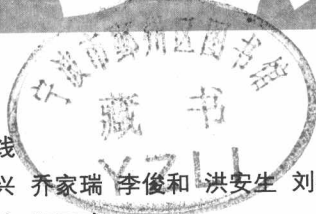 宁波市鄞州区图书馆
藏书
钱
兴 乔家瑞 李俊和 洪安生 刘